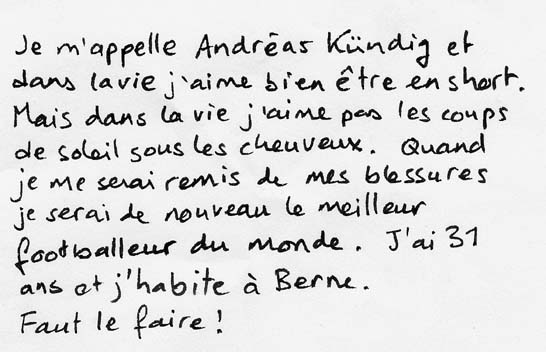 Je m'appelle Andréas Kündig et
dans la vie j'aime bien être en short.
Mais dans la vie j'aime pas les coups
de soleil sous les cheuveux. Quand
je me serai remis de mes blessures
je serai de nouveau le meilleur
footballeur du monde. J'ai 31
ans et j'habite à Berne.
Faut le faire !